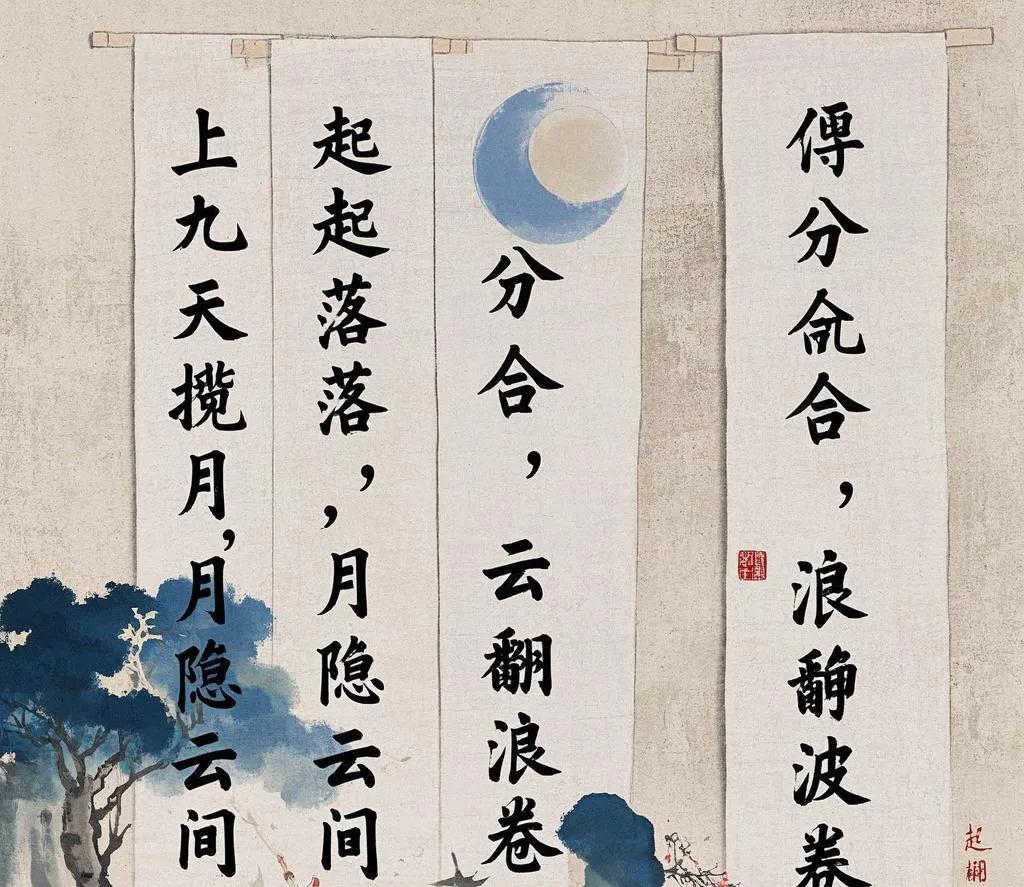 分合，浪波
分合，云翻浪卷
起起落落，，月隐云间
上九天揽月，月隐云间